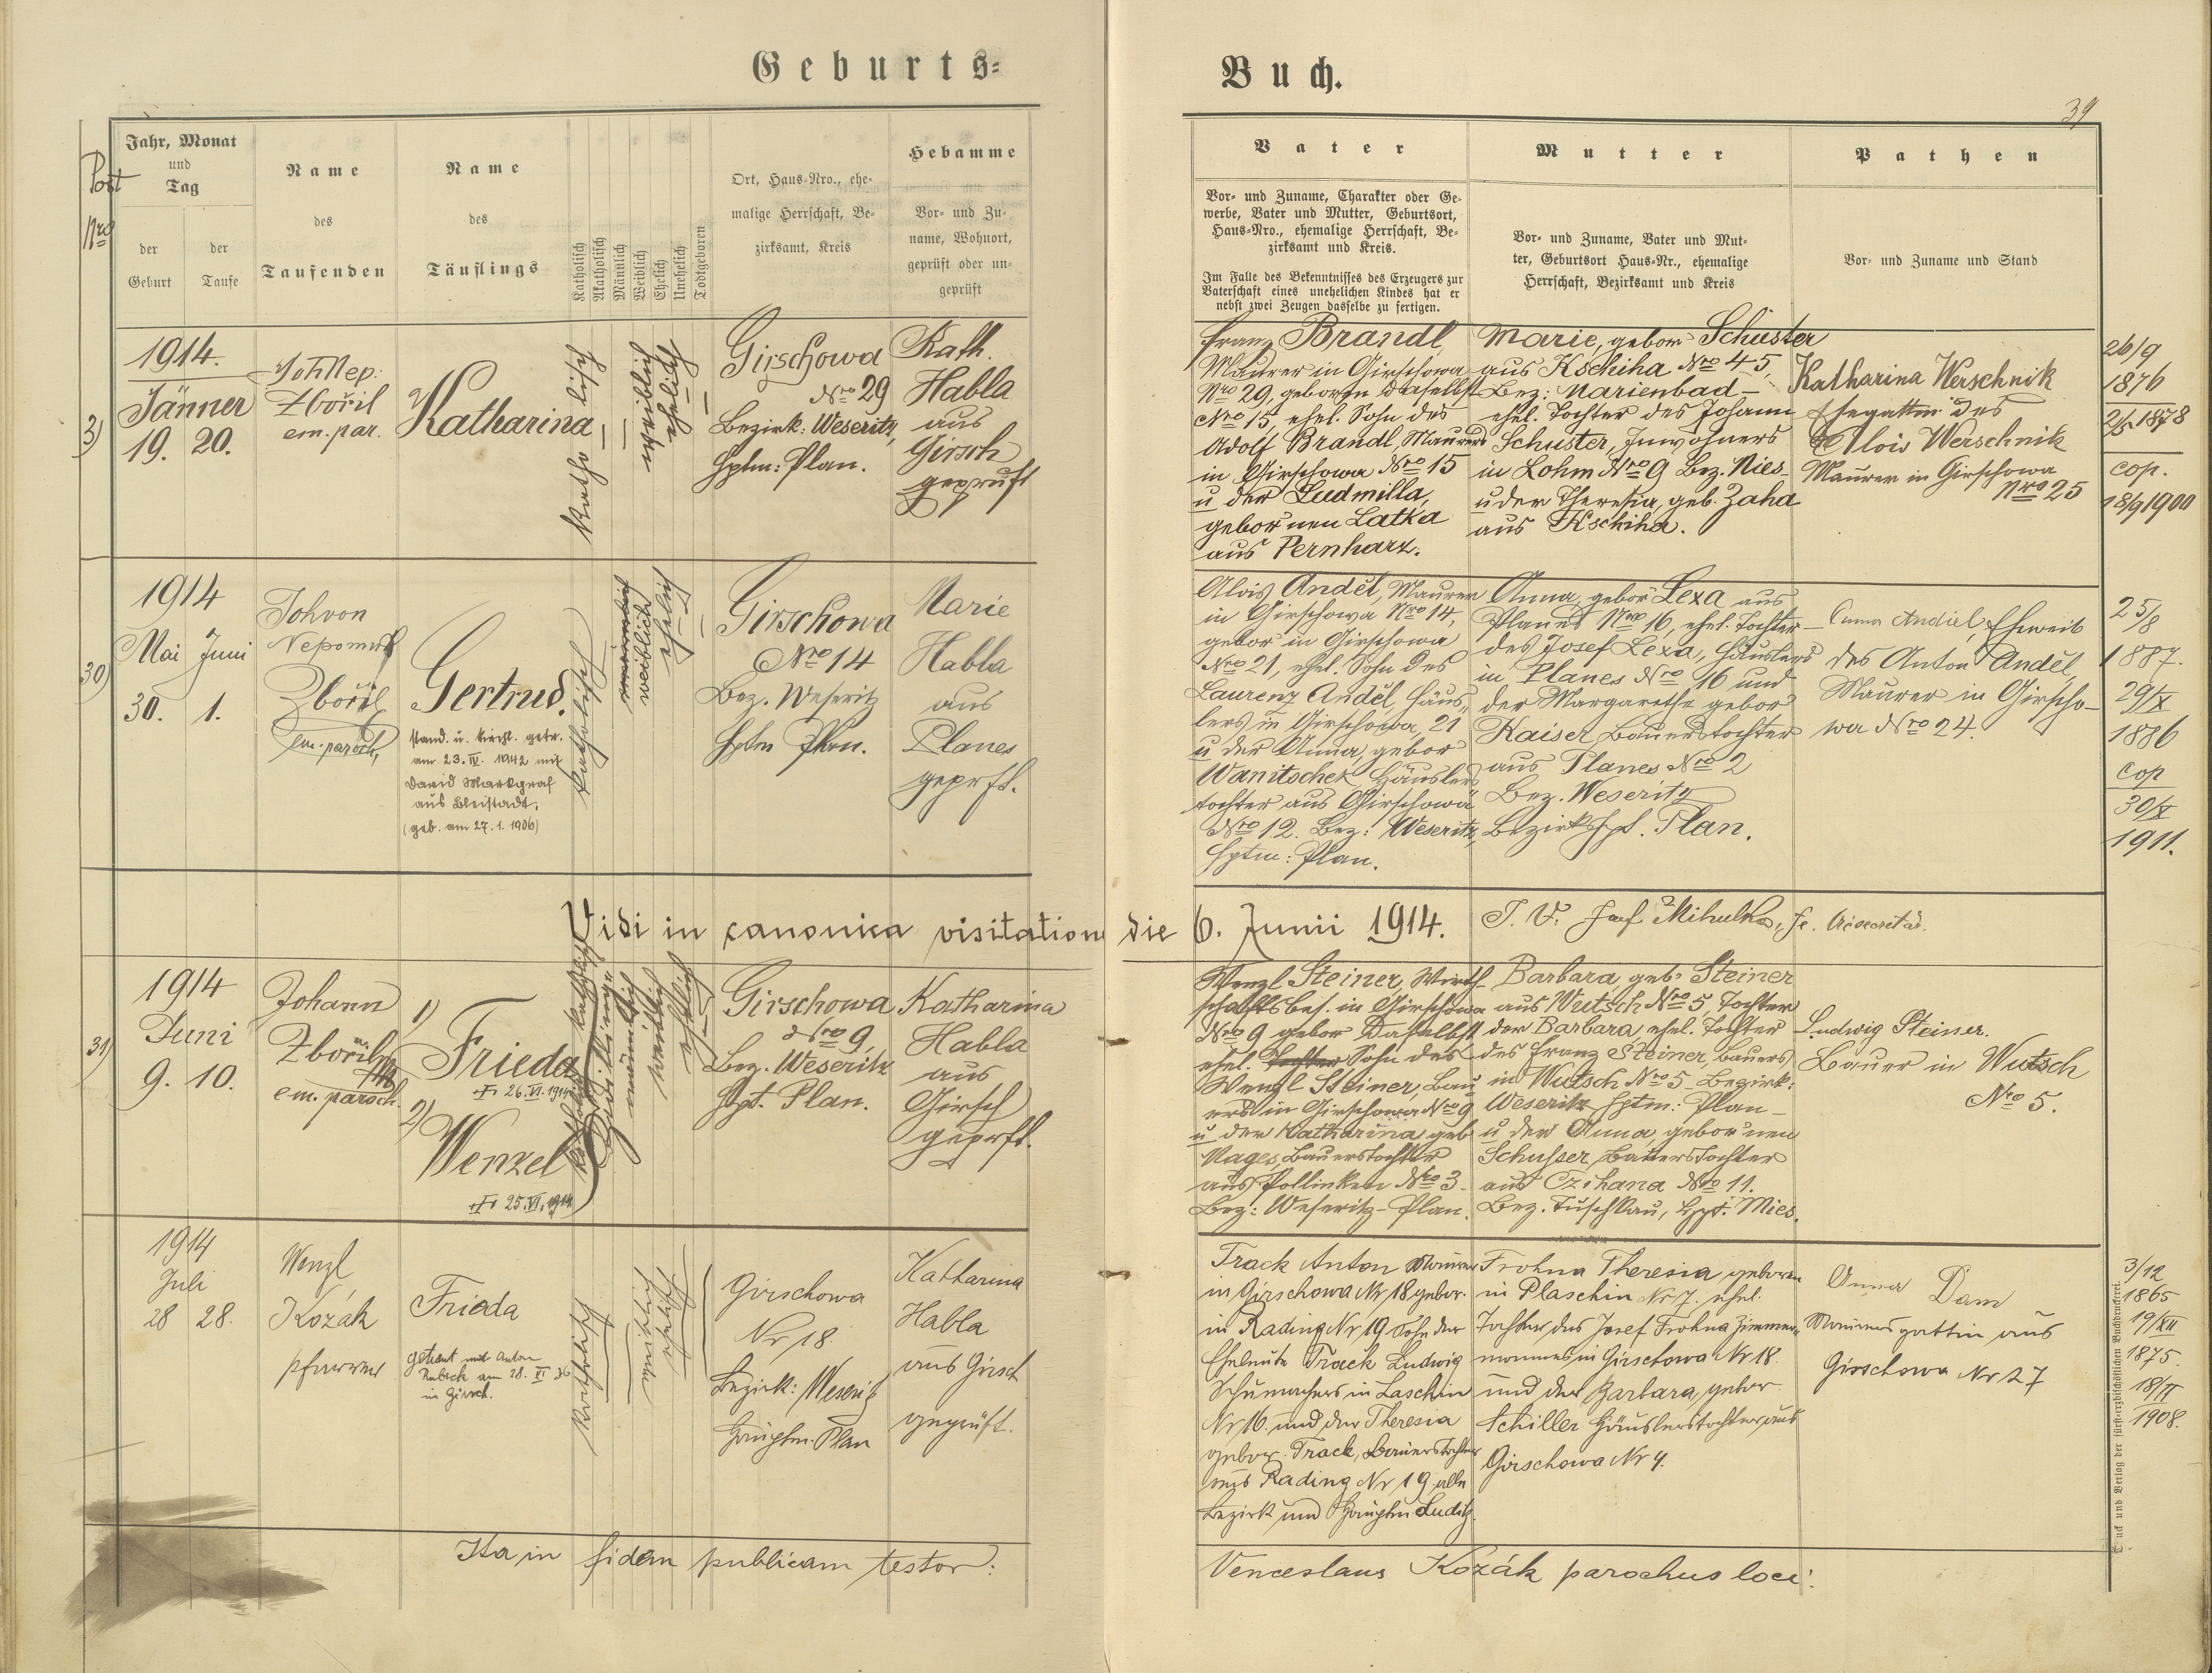 Geburts=
Buch.
39
Post
Nro
Jahr, Monat
und
Tag
der
Geburt
der
Taufe
Name
des
Taufenden
Name
des
Täuflings
Katholisch
Akatholisch
Männlich
Weiblich
Ehelich
Unehelich
Todtgeboren
Ort, Haus-Nro., ehe-
malige Herrschaft, Be-
zirksamt, Kreis
Hebamme
Vor- und Zu-
name, Wohnort,
geprüft oder un-
geprüft
Vater
Vor- und Zuname, Charakter oder Ge-
werbe, Vater und Mutter, Geburtsort,
Haus-Nro., ehemalige Herrschaft, Be-
zirksamt und Kreis.
Im Falle des Bekenntnisses des Erzeugers zur
Vaterschaft eines unehelichen Kindes hat er
nebst zwei Zeugen dasselbe zu fertigen.
Mutter
Vor- und Zuname, Vater und Mut-
ter, Geburtsort Haus-Nr., ehemalige
Herrschaft, Bezirksamt und Kreis
Pathen
Vor- und Zuname und Stand
1914.
Jänner
19. 20.
Joh Nep:
Zbořil
em. par.
Katharina
katholisch
weiblich
ehelich
Girschowa
Nro 29
Bezirk: Weseritz,
Hptm: Plan.
Kath.
Habla
aus
Girsch
geprüft
Franz Brandl
Maurer in Girschowa
Nro 29, geboren daselbst
Nro 15, ehel. Sohn des
Adolf Brandl, Maurers
in Girschowa Nro 15
u der Ludmilla,
gebornen Latka
aus Pernharz.
Marie, gebor Schuster
aus Kschiha Nro 45,
Bez: Marienbad
ehel. Tochter des Johann
Schuster, Inwohners
in Lohm Nro 9 Bez. Mies
u der Theresia, geb. Zaha
aus Kschiha.
Katharina Werschnik
Ehegattin des
Alois Werschnik
Maurer in Girschowa
Nro 25
26/9
1876
2/5 1878
cop.
18/9 1900
30)
1914
Mai Juni
30. 1.
Joh von
Nepomuk
Zbořil
em. paroch,
Gertrud.
stand. u. kirchl. getr.
am 23. IV. 1942 mit
David Markgraf
aus Bleistadt.
(geb. am 27.1.1906)
katholisch
männlich
weiblich
ehelich
Girschowa
Nro 14
Bez. Weseritz
Hptm Plan.
Marie
Habla
aus
Planes
geprft.
Alois Anděl, Maurer
in Girschowa Nro 14,
gebor in Girschowa
Nro 21, ehel. Sohn des
Laurenz Anděl, Häus,
lers in Girschowa, 21
u der Anna, gebor
Wanitschek Häuslers
tochter aus Girschowa
Nro 12. Bez: Weseritz,
Hptm: Plan.
Anna, gebor Lexa aus
Planes Nro 16, ehel. Tochter
des Josef Lexa, Häuslers
in Planes Nro 16 und
der Margarethe gebor
Kaiser Bauerstochter
aus Planes Nro 2
Bez. Weseritz
Bezirkshpt. Plan.
Anna Andiel, Eheweib
des Anton Anděl,
Maurer in Girscho-
wa Nro 24.
25/8
1887.
29/X
1886
cop
30/X
1911.
Vidi in canonica visitatione die 6. Junii 1914.
31)
1914
Juni
9. 10.
Johann
Zbořil
em. paroch.
1)
Frieda
+ 26. VI. 1914
2)
Wenzel
+ 25. VI. 1914
Zwillinge
männlich
weiblich
ehelich
Girschowa
Nro 9,
Bez. Weseritz
Hpt. Plan.
Katharina
Habla
aus
Girsch
geprft.
Wenzl Steiner, Wirth-
schaftsbes. in Girschowa
Nro 9 gebor daselbst
ehel. Tochter Sohn des
Wenzl Steiner, Bau
ers in Girschowa Nro 9
u der Katharina geb
Nages, Bauerstochter
aus Pollinken Nro 3.
Bez: Weseritz - Plan.
Barbara, geb. Steiner
aus Wutsch Nro 5, Tochter
der Barbara, ehel. Tochter
des Franz Steiner, Bauers
in Wutsch Nro 5 Bezirk:
Weseritz Hptm: Plan-
u der Anna, gebor'nen
Schusser, Bauerstochter
aus Czihana Nro 11.
Bez. Tuschkau, Hpt. Mies.
Ludwig Steiner.
Bauer in Wutsch
Nro 5.
1914
Juli
28 28.
Wenzl
Kozák
Pfarrer
Frieda
getraut mit Anton
Rubeck am 28. XI 36
in Girsch.
katholisch
weiblich
ehelich
Girschowa
Nr 18.
Bezirk: Weseritz
Hauptm. Plan
Katharina
Habla
aus Girsch
geprüft.
Track Anton Maurer
in Girschowa Nr 18 gebor.
in Rading Nr 19 Sohn der
Eheleute Track Ludwig
Schumachers in Laschin
Nr 16 und der Theresia
gebor. Track, Bauerstochter
aus Rading Nr 19, alle
Bezirk und Hauptm. Luditz.
Frohna Theresia, geboren
in Plaschin Nr 7. ehel.
Tochter des Josef Frohna Zimmer-
mannes in Girschowa Nr 18.
und der Barbara, gebor.
Schiller Häuslerstochter aus
Girschowa Nr 4.
Anna Dam
Maurersgattin aus
Girschowa Nr 27
3/12
1865
19/XII
1875.
18/II
1908.
Ita in fidem publicam testor:
Venceslaus Kozák parochus loci.
Druck und Verlag der fürsterzbischöflichen Buchdruckerei.